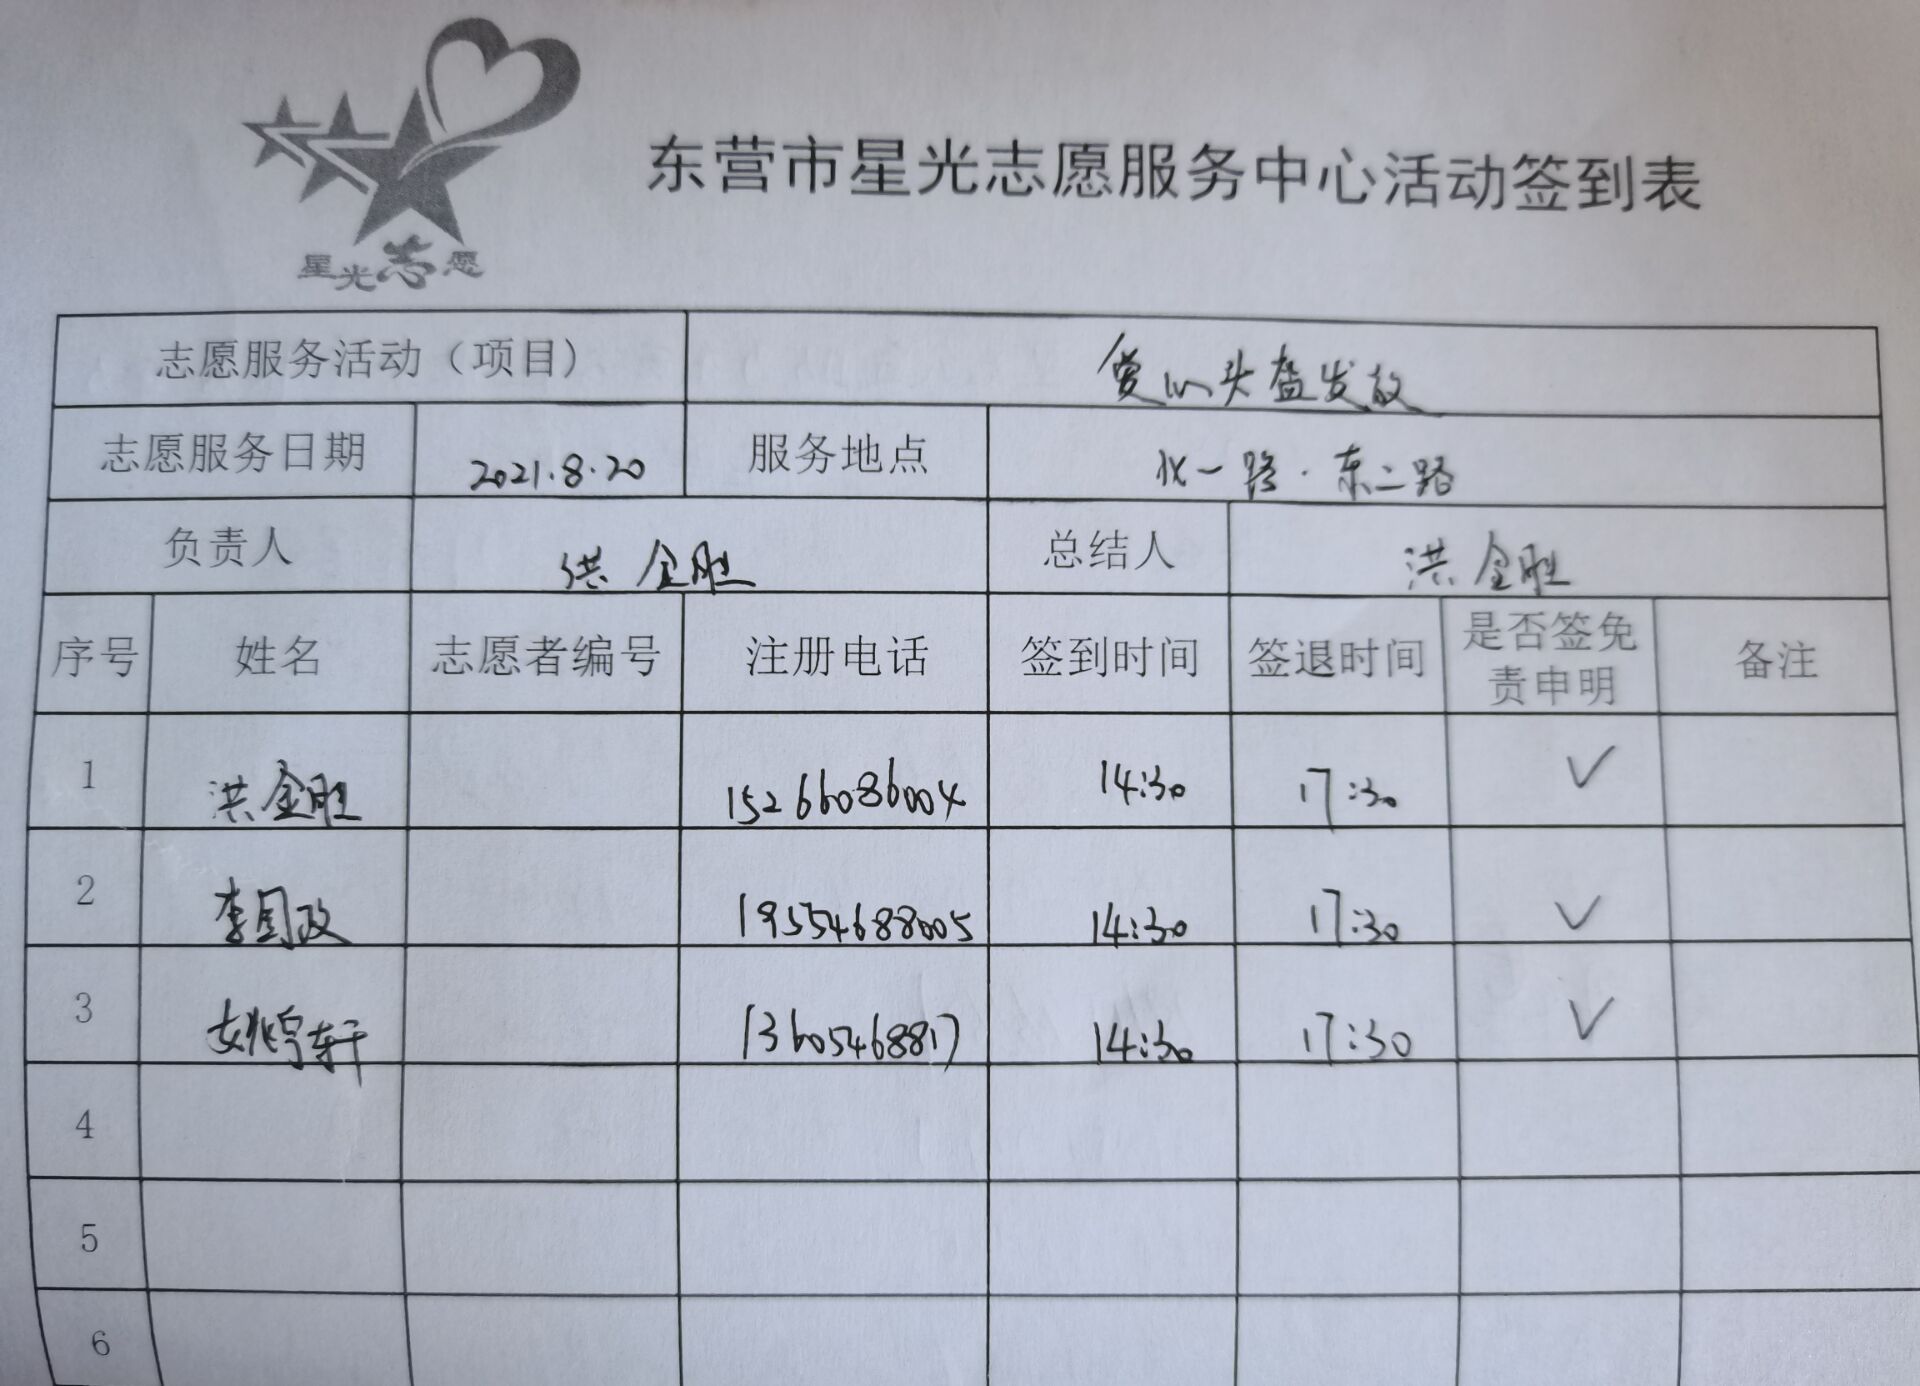 星光志愿
东营市星光志愿服务中心活动签到表
志愿服务活动（项目） 爱心头盔发放
志愿服务日期 2021.8.20 服务地点 北一路·东二路
负责人 洪金胜 总结人 洪金胜
序号 姓名 志愿者编号 注册电话 签到时间 签退时间 是否签免责申明 备注
1 洪金胜 15266086004 14:30 17:30 ✓
2 李国政 19554688005 14:30 17:30 ✓
3 姚宇轩 13605468817 14:30 17:30 ✓
4
5
6